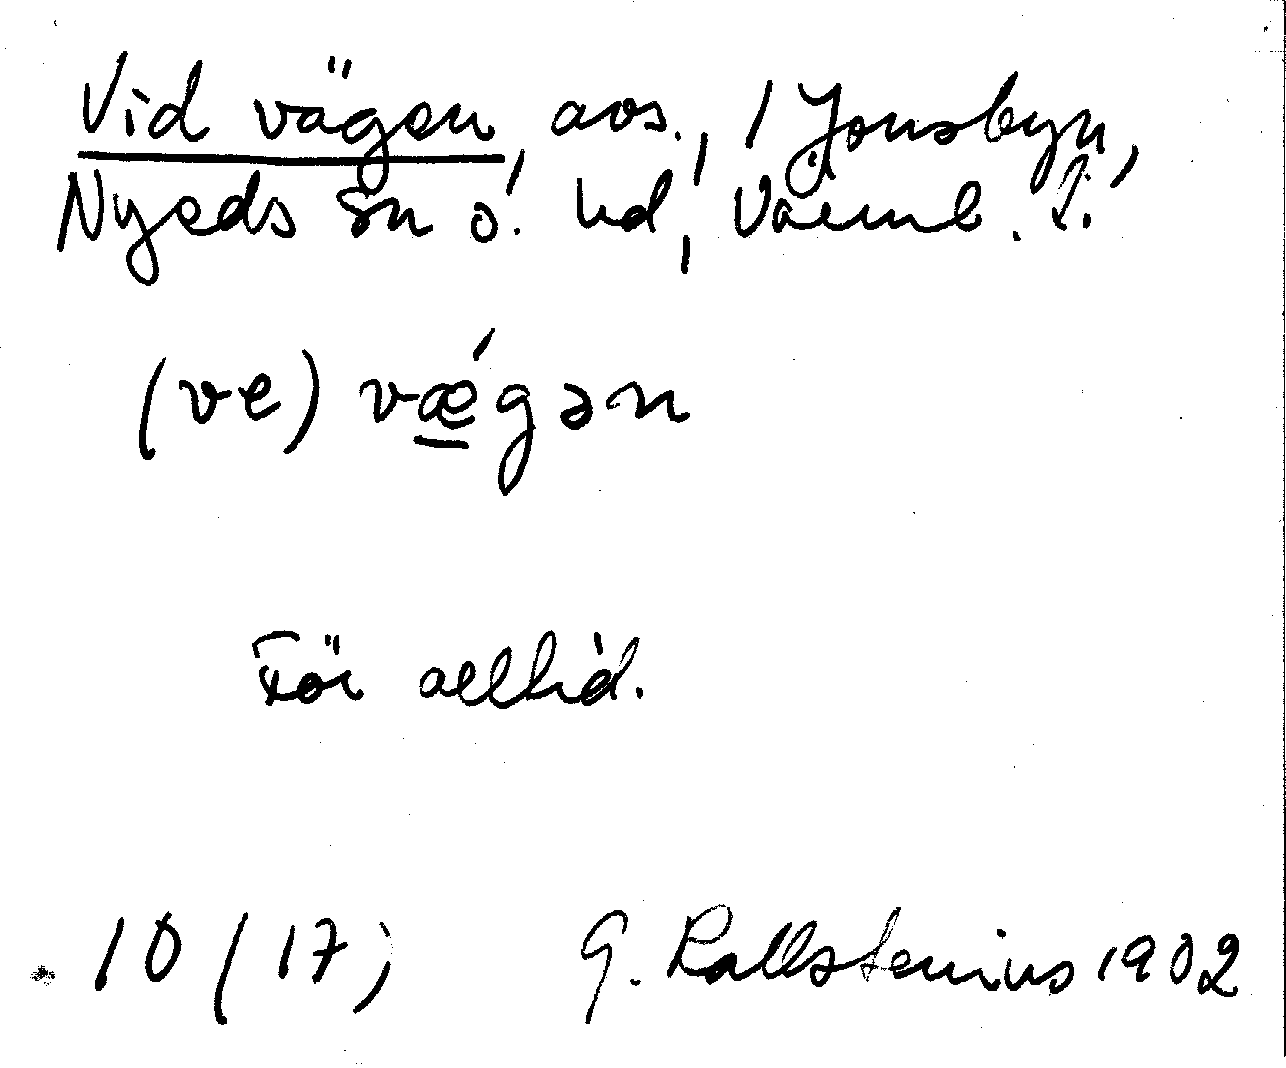 Vid vägen, avs., 1 Jonsbyn,
Nyeds sn o. hd, Värml. l.
(ve) vǽgən
För alltid.
10 (17) G. Kallstenius 1902